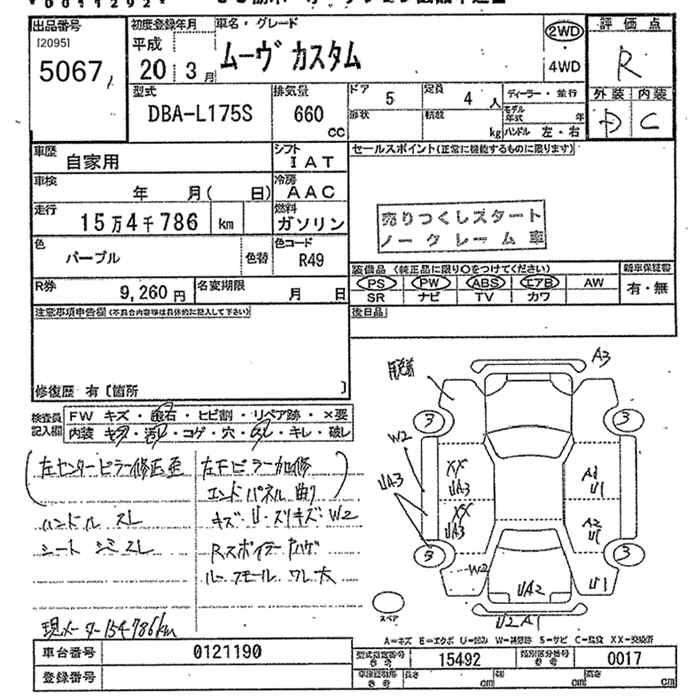 出品番号
[2095]
5067
初度登録年月
平成
20 3月
車名・グレード
ムーヴ カスタム
2WD
4WD
評価点
R
外装 内装
D C
型式
DBA-L175S
排気量
660
CC
ドア
5
定員
4 人
形状
積載
kg
ディーラー・並行
モデル年式 年
ハンドル 左・右
車歴
自家用
シフト
IAT
車検
年 月( 日)
冷房
AAC
走行
15万4千786 km
燃料
ガソリン
色
パープル
色替
色コード
R49
R券
9,260円
名変期限
月 日
セールスポイント(正常に機能するものに限ります)
売りつくしスタート
ノークレーム車
装備品 (純正品に限り○をつけてください)
PS PW ABS エアB AW
SR ナビ TV カワ
新車保証書
有・無
後日品
注意事項申告欄(不具合内容等は具体的に記入して下さい)
修復歴 有〔箇所 〕
検査員記入欄
FW キズ・飛石・ヒビ割・リペア跡・×要
内装 キズ・汚れ・コゲ・穴・スレ・キレ・破レ
左センターピラー修正歪
ハンドル スレ
シート シミスレ
現メーター154-786km
エンドパネル曲り
キズ・U・スリキズ W2
Rスポイラー
A3
3
3
3
3
W2
UA3
XX
UA3
XX
UA3
A3
U1
A2
U1
W2
UA2
U1
U2 A1
スペア
A=キズ E=エクボ U=凹み W=補修跡 S=サビ C=腐食 XX=交換済
車台番号
0121190
登録番号
型式指定番号
参考
15492
類別区分番号
参考
0017
長さ cm
幅 cm
高さ cm